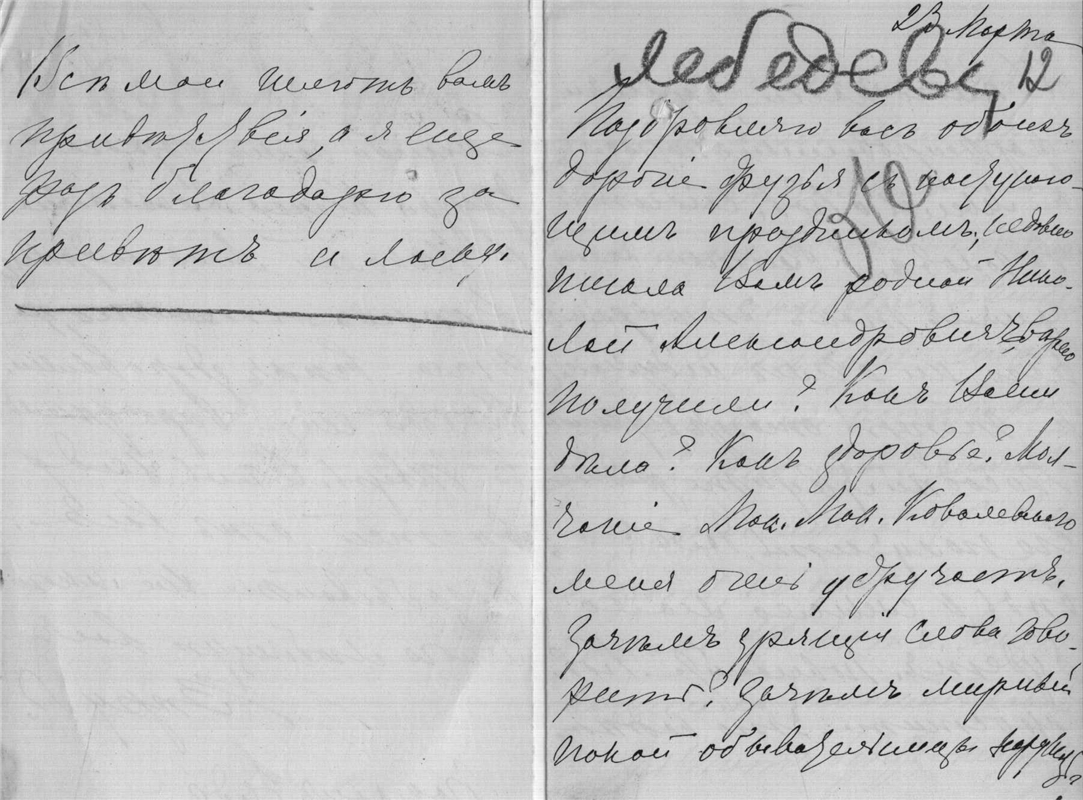 Всѣ мои шлютъ вамъ
привѣтствія, а я еще
разъ благодарю за
привѣтъ и ласку.
23 Марта
12
Лебедевы
Поздравляю васъ обоихъ
дорогіе друзья съ наступаю-
щимъ праздникомъ, недавно
писала Вамъ родной Нико-
лай Александровичъ,
получили? Какъ Ваши
дѣла? Какъ здоровье? Мол-
чаніе Мак. Мак. Ковалевскаго
меня очень удручаетъ.
Зачѣмъ зрящія слова гово-
рить? Зачѣмъ мирный
покой обывательницы